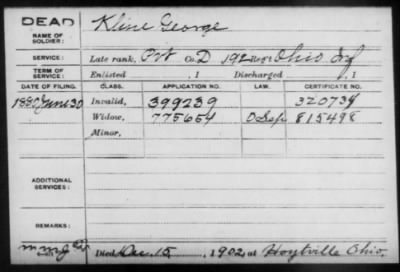 DEAD Kline George
NAME OF
SOLDIER:
SERVICE: Late rank, Pvt Co. D 192 Reg't Ohio Inf
TERM OF
SERVICE: Enlisted , 1 Discharged , 1
DATE OF FILING. CLASS. APPLICATION NO. LAW. CERTIFICATE NO.
1880 June 30 Invalid, 399239 320734
Widow, 775654 815498
Minor,
ADDITIONAL
SERVICES:
REMARKS:
Died Dec. 15, 1902, at Hoytville Ohio.